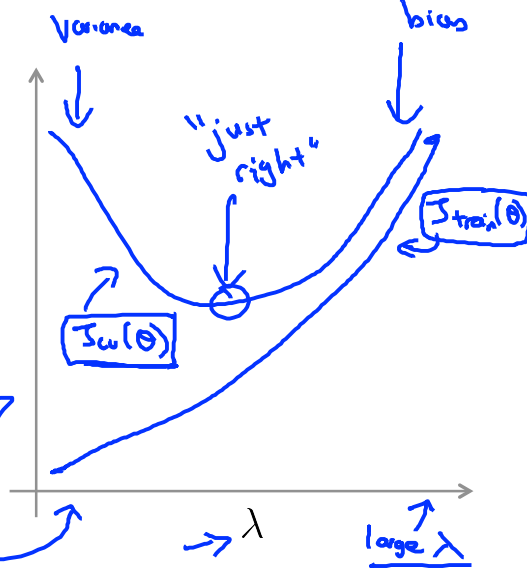 Variance
bias
"just
right"
Jtrain(θ)
Jcv(θ)
λ
large λ